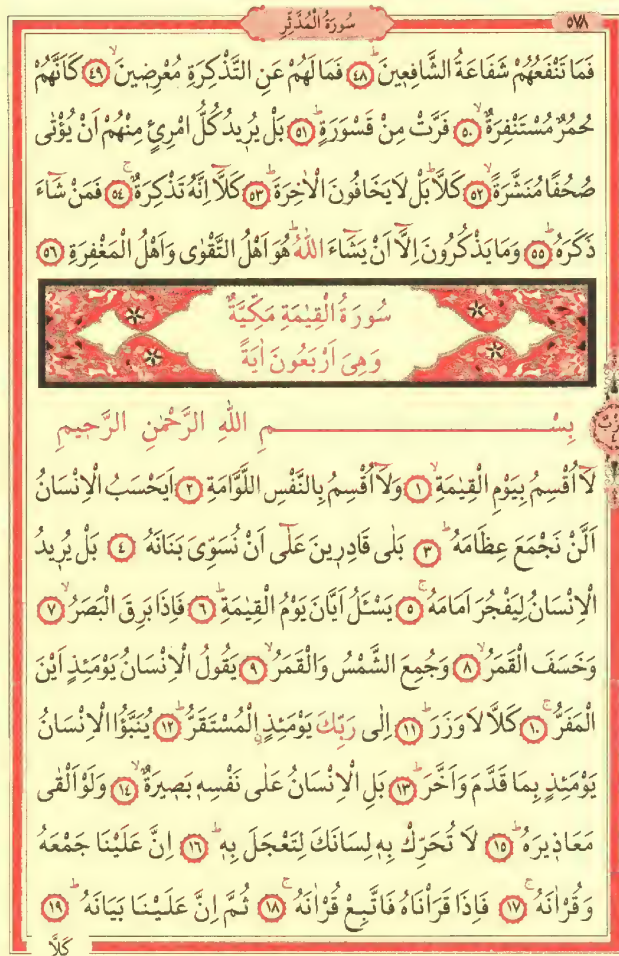 سُورَةُ الْمُدَّثِّرِ
٥٧٨
فَمَا تَنْفَعُهُمْ شَفَاعَةُ الشَّافِعٖينَۜ ٤٨ فَمَا لَهُمْ عَنِ التَّذْكِرَةِ مُعْرِضٖينَۙ ٤٩ كَاَنَّهُمْ
حُمُرٌ مُسْتَنْفِرَةٌۙ ٥٠ فَرَّتْ مِنْ قَسْوَرَةٍۜ ٥١ بَلْ يُرٖيدُ كُلُّ امْرِئٍ مِنْهُمْ اَنْ يُؤْتٰى
صُحُفًا مُنَشَّرَةًۙ ٥٢ كَلَّاۜ بَلْ لَا يَخَافُونَ الْاٰخِرَةَۜ ٥٣ كَلَّٓا اِنَّهُ تَذْكِرَةٌۚ ٥٤ فَمَنْ شَٓاءَ
ذَكَرَهُۜ ٥٥ وَمَا يَذْكُرُونَ اِلَّٓا اَنْ يَشَٓاءَ اللّٰهُۜ هُوَ اَهْلُ التَّقْوٰى وَاَهْلُ الْمَغْفِرَةِ ٥٦
سُورَةُ الْقِيٰمَةِ مَكِّيَّةٌ
وَهِىَ اَرْبَعُونَ اٰيَةً
بِسْمِ اللّٰهِ الرَّحْمٰنِ الرَّحٖيمِ
لَٓا اُقْسِمُ بِيَوْمِ الْقِيٰمَةِۙ ١ وَلَٓا اُقْسِمُ بِالنَّفْسِ اللَّوَّامَةِ ٢ اَيَحْسَبُ الْاِنْسَانُ
اَلَّنْ نَجْمَعَ عِظَامَهُۜ ٣ بَلٰى قَادِرٖينَ عَلٰٓى اَنْ نُسَوِّىَ بَنَانَهُ ٤ بَلْ يُرٖيدُ
الْاِنْسَانُ لِيَفْجُرَ اَمَامَهُۚ ٥ يَسْـَٔلُ اَيَّانَ يَوْمُ الْقِيٰمَةِۜ ٦ فَاِذَا بَرِقَ الْبَصَرُۙ ٧
وَخَسَفَ الْقَمَرُۙ ٨ وَجُمِعَ الشَّمْسُ وَالْقَمَرُۙ ٩ يَقُولُ الْاِنْسَانُ يَوْمَئِذٍ اَيْنَ
الْمَفَرُّۚ ١٠ كَلَّا لَا وَزَرَۜ ١١ اِلٰى رَبِّكَ يَوْمَئِذٍ الْمُسْتَقَرُّۜ ١٢ يُنَبَّؤُا الْاِنْسَانُ
يَوْمَئِذٍ بِمَا قَدَّمَ وَاَخَّرَۜ ١٣ بَلِ الْاِنْسَانُ عَلٰى نَفْسِهٖ بَصٖيرَةٌۙ ١٤ وَلَوْ اَلْقٰى
مَعَاذٖيرَهُۜ ١٥ لَا تُحَرِّكْ بِهٖ لِسَانَكَ لِتَعْجَلَ بِهٖۜ ١٦ اِنَّ عَلَيْنَا جَمْعَهُ
وَقُرْاٰنَهُۚ ١٧ فَاِذَا قَرَاْنَاهُ فَاتَّبِعْ قُرْاٰنَهُۚ ١٨ ثُمَّ اِنَّ عَلَيْنَا بَيَانَهُۜ ١٩
كَلَّا